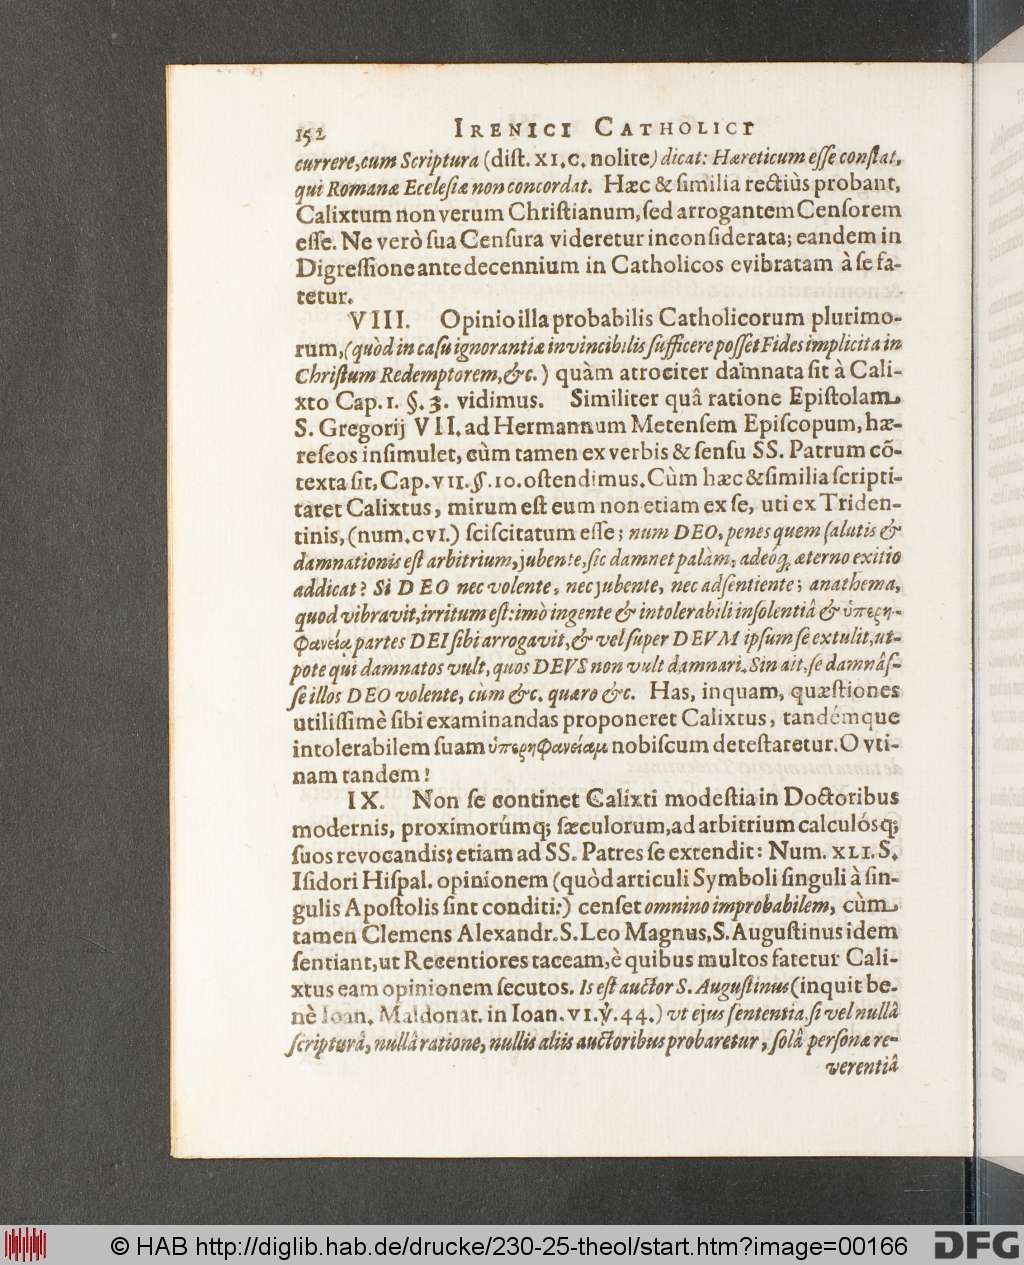 152 IRENICI CATHOLICI
currere, cum Scriptura (diſt. XI. C. nolite) dicat: Hæreticum eſſe conſtat,
qui Romanæ Eccleſiæ non concordat. Hæc & ſimilia rectiùs probant,
Calixtum non verum Chriſtianum, ſed arrogantem Cenſorem
eſſe. Ne verò ſua Cenſura videretur inconſiderata; eandem in
Digreſſione ante decennium in Catholicos evibratam à ſe fa-
tetur.
VIII. Opinio illa probabilis Catholicorum plurimo-
rum, (quòd in caſu ignorantiæ invincibilis ſufficere poſſet Fides implicita in
Chriſtum Redemptorem, &c.) quàm atrociter damnata ſit à Cali-
xto Cap. 1. §. 3. vidimus. Similiter quâ ratione Epiſtolam
S. Gregorij VII. ad Hermannum Metenſem Epiſcopum, hæ-
reſeos inſimulet, cùm tamen ex verbis & ſenſu SS. Patrum cõ-
texta ſit, Cap. VII. §. 10. oſtendimus. Cùm hæc & ſimilia ſcripti-
taret Calixtus, mirum eſt eum non etiam ex ſe, uti ex Triden-
tinis, (num. CVI.) ſciſcitatum eſſe; num DEO, penes quem ſalutis &
damnationis eſt arbitrium, jubente, ſic damnet palàm, adeóq; æterno exitio
addicat? Si DEO nec volente, nec jubente, nec adſentiente; anathema,
quod vibravit, irritum eſt: imò ingente & intolerabili inſolentiâ & ὑπερη-
φανείᾳ partes DEI ſibi arrogavit, & vel ſuper DEVM ipſum ſe extulit, ut-
pote qui damnatos vult, quos DEVS non vult damnari. Sin ait, ſe damnâſ-
ſe illos DEO volente, cùm &c. quæro &c. Has, inquam, quæſtiones
utiliſſimè ſibi examinandas proponeret Calixtus, tandémque
intolerabilem ſuam ὑπερηφανείαμ nobiſcum deteſtaretur. O vti-
nam tandem!
IX. Non ſe continet Calixti modeſtia in Doctoribus
modernis, proximorúmq; ſæculorum, ad arbitrium calculósq;
ſuos revocandis: etiam ad SS. Patres ſe extendit: Num. XLI. S.
Iſidori Hiſpal. opinionem (quòd articuli Symboli ſinguli à ſin-
gulis Apoſtolis ſint conditi:) cenſet omnino improbabilem, cùm
tamen Clemens Alexandr. S. Leo Magnus, S. Auguſtinus idem
ſentiant, ut Recentiores taceam, è quibus multos fatetur Cali-
xtus eam opinionem ſecutos. Is eſt auctor S. Auguſtinus (inquit be-
nè Ioan. Maldonat. in Ioan. VI. ℣. 44.) vt ejus ſententia, ſi vel nullâ
ſcripturâ, nullâ ratione, nullis aliis auctoribus probaretur, ſolâ perſonæ re-
verentiâ
© HAB http://diglib.hab.de/drucke/230-25-theol/start.htm?image=00166
DFG